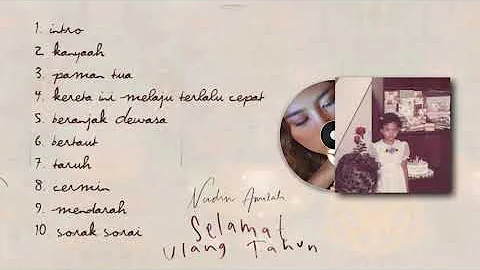 1. intro
2. kanyaah
3. paman tua
4. kereta ini melaju terlalu cepat
5. beranjak dewasa
6. bertaut
7. taruh
8. cermin
9. mendarah
10 sorak sorai
Nadin Amizah
Selamat
Ulang Tahun